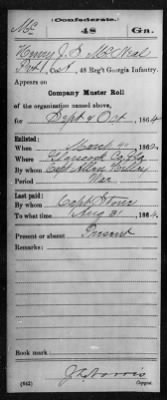 (Confederate.)
Mc 48 Ga.
Henry J. McNeal
Pvt, Co. , 48 Reg't Georgia Infantry.
Appears on
Company Muster Roll
of the organization named above,
for Sept & Oct, 1864.
Enlisted:
When March, 1862.
Where Co Ga
By whom Capt
Period War
Last paid:
By whom Capt
To what time Aug 31, 1864.
Present or absent Present
Remarks:
Book mark:
(642) Copyist.